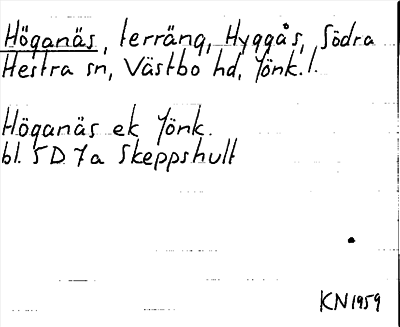 Höganäs, terräng, Hyggås, Södra
Hestra sn, Västbo hd, Jönk.l.
Höganäs ek Jönk.
bl. 5D 7a Skeppshult
KN1959